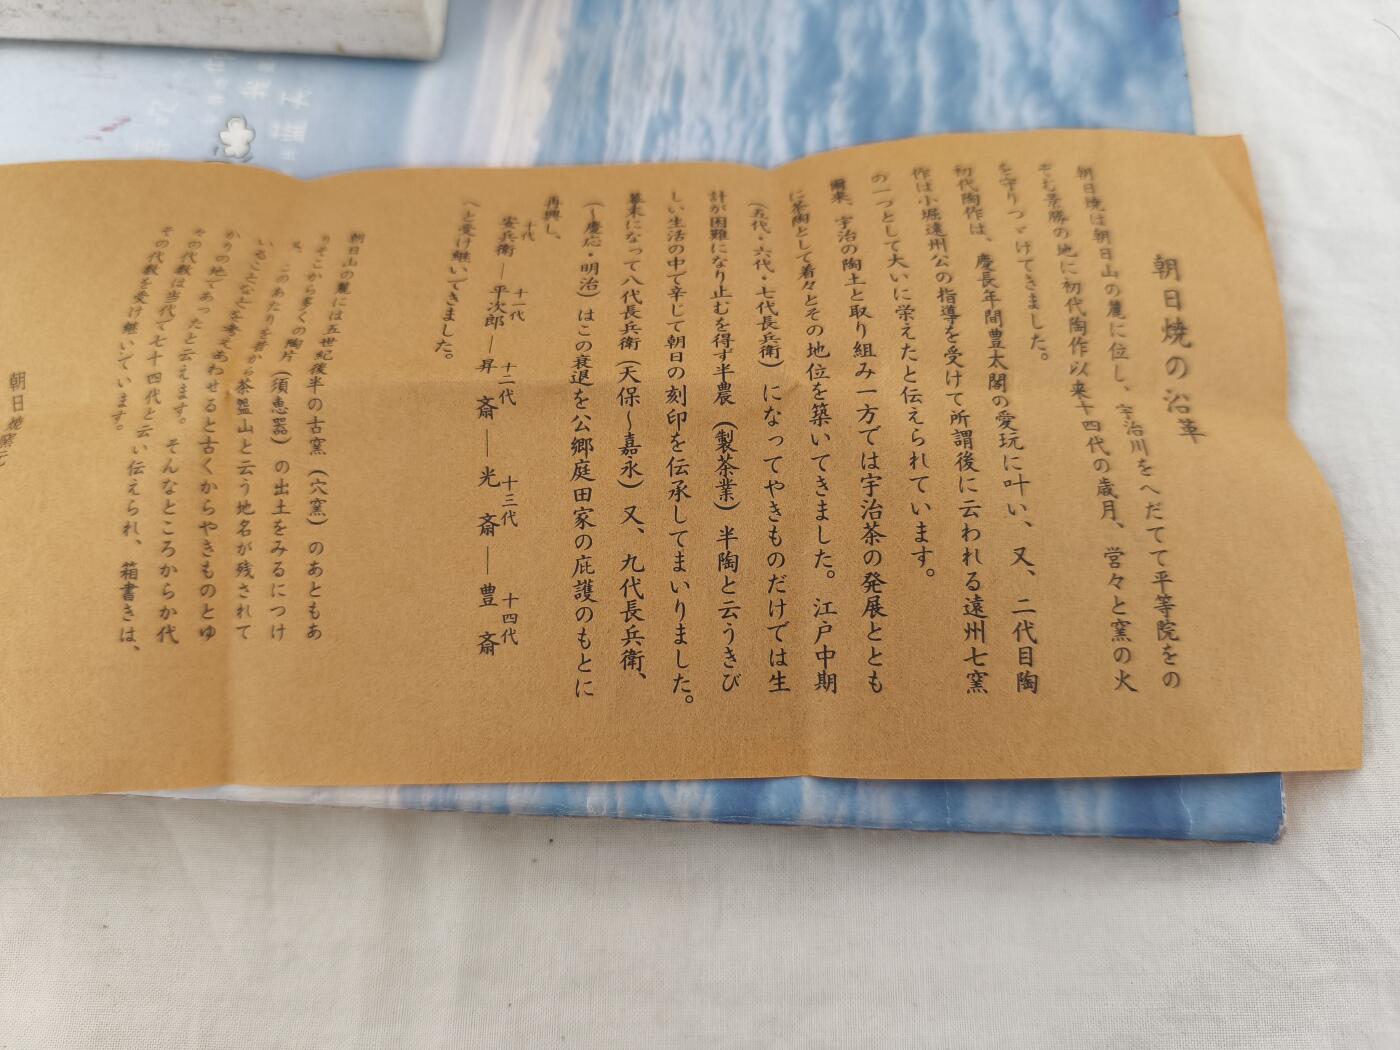 朝日焼の沿革
朝日焼は朝日山の麓に位し、宇治川をへだてて平等院をの
ぞむ景勝の地に初代陶作以来十四代の歳月、営々と窯の火
を守りつゞけてきました。
初代陶作は、慶長年間豊太閤の愛玩に叶い、又、二代目陶
作は小堀遠州公の指導を受けて所謂後に云われる遠州七窯
の一つとして大いに栄えたと伝えられています。
爾来、宇治の陶土と取り組み一方では宇治茶の発展ととも
に茶陶として着々とその地位を築いてきました。江戸中期
(五代・六代・七代長兵衛)になってやきものだけでは生
計が困難になり止むを得ず半農(製茶業)半陶と云うきび
しい生活の中で辛じて朝日の刻印を伝承してまいりました。
幕末になって八代長兵衛(天保〜嘉永)又、九代長兵衛、
(〜慶応・明治)はこの衰退を公郷庭田家の庇護のもとに
再興し、
十代 十一代 十二代 十三代 十四代
安兵衛―平次郎―昇斎―光斎―豊斎
へと受け継いできました。
朝日山の麓には五世紀後半の古窯(穴窯)のあともあ
りそこから多くの陶片(須恵器)の出土をみるにつけ
又、このあたりを昔から茶盌山と云う地名が残されて
いることなどを考えあわせると古くからやきものとゆ
かりの地であったと云えます。そんなところからか代
々の代数は当代で七十四代と云い伝えられ、箱書きは、
その代数を受け継いでいます。
朝日焼窯元